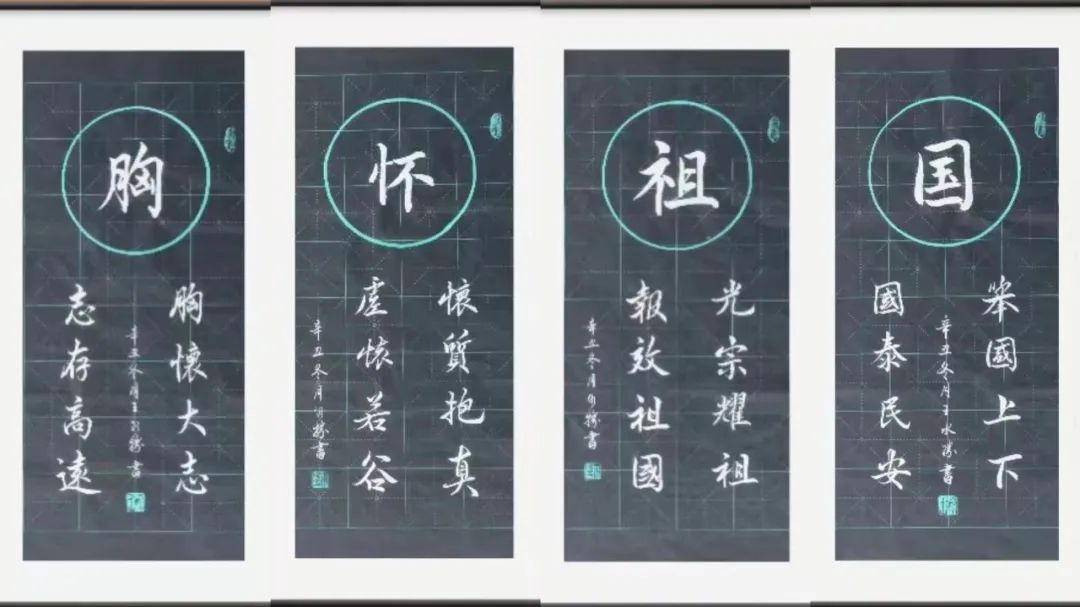 胸
胸懷大志
志存高遠
辛丑冬月王書
怀
懷質抱真
虛懷若谷
辛丑冬月書
祖
光宗耀祖
報效祖國
辛丑冬月書
国
笨國上下
國泰民安
辛丑冬月王水書